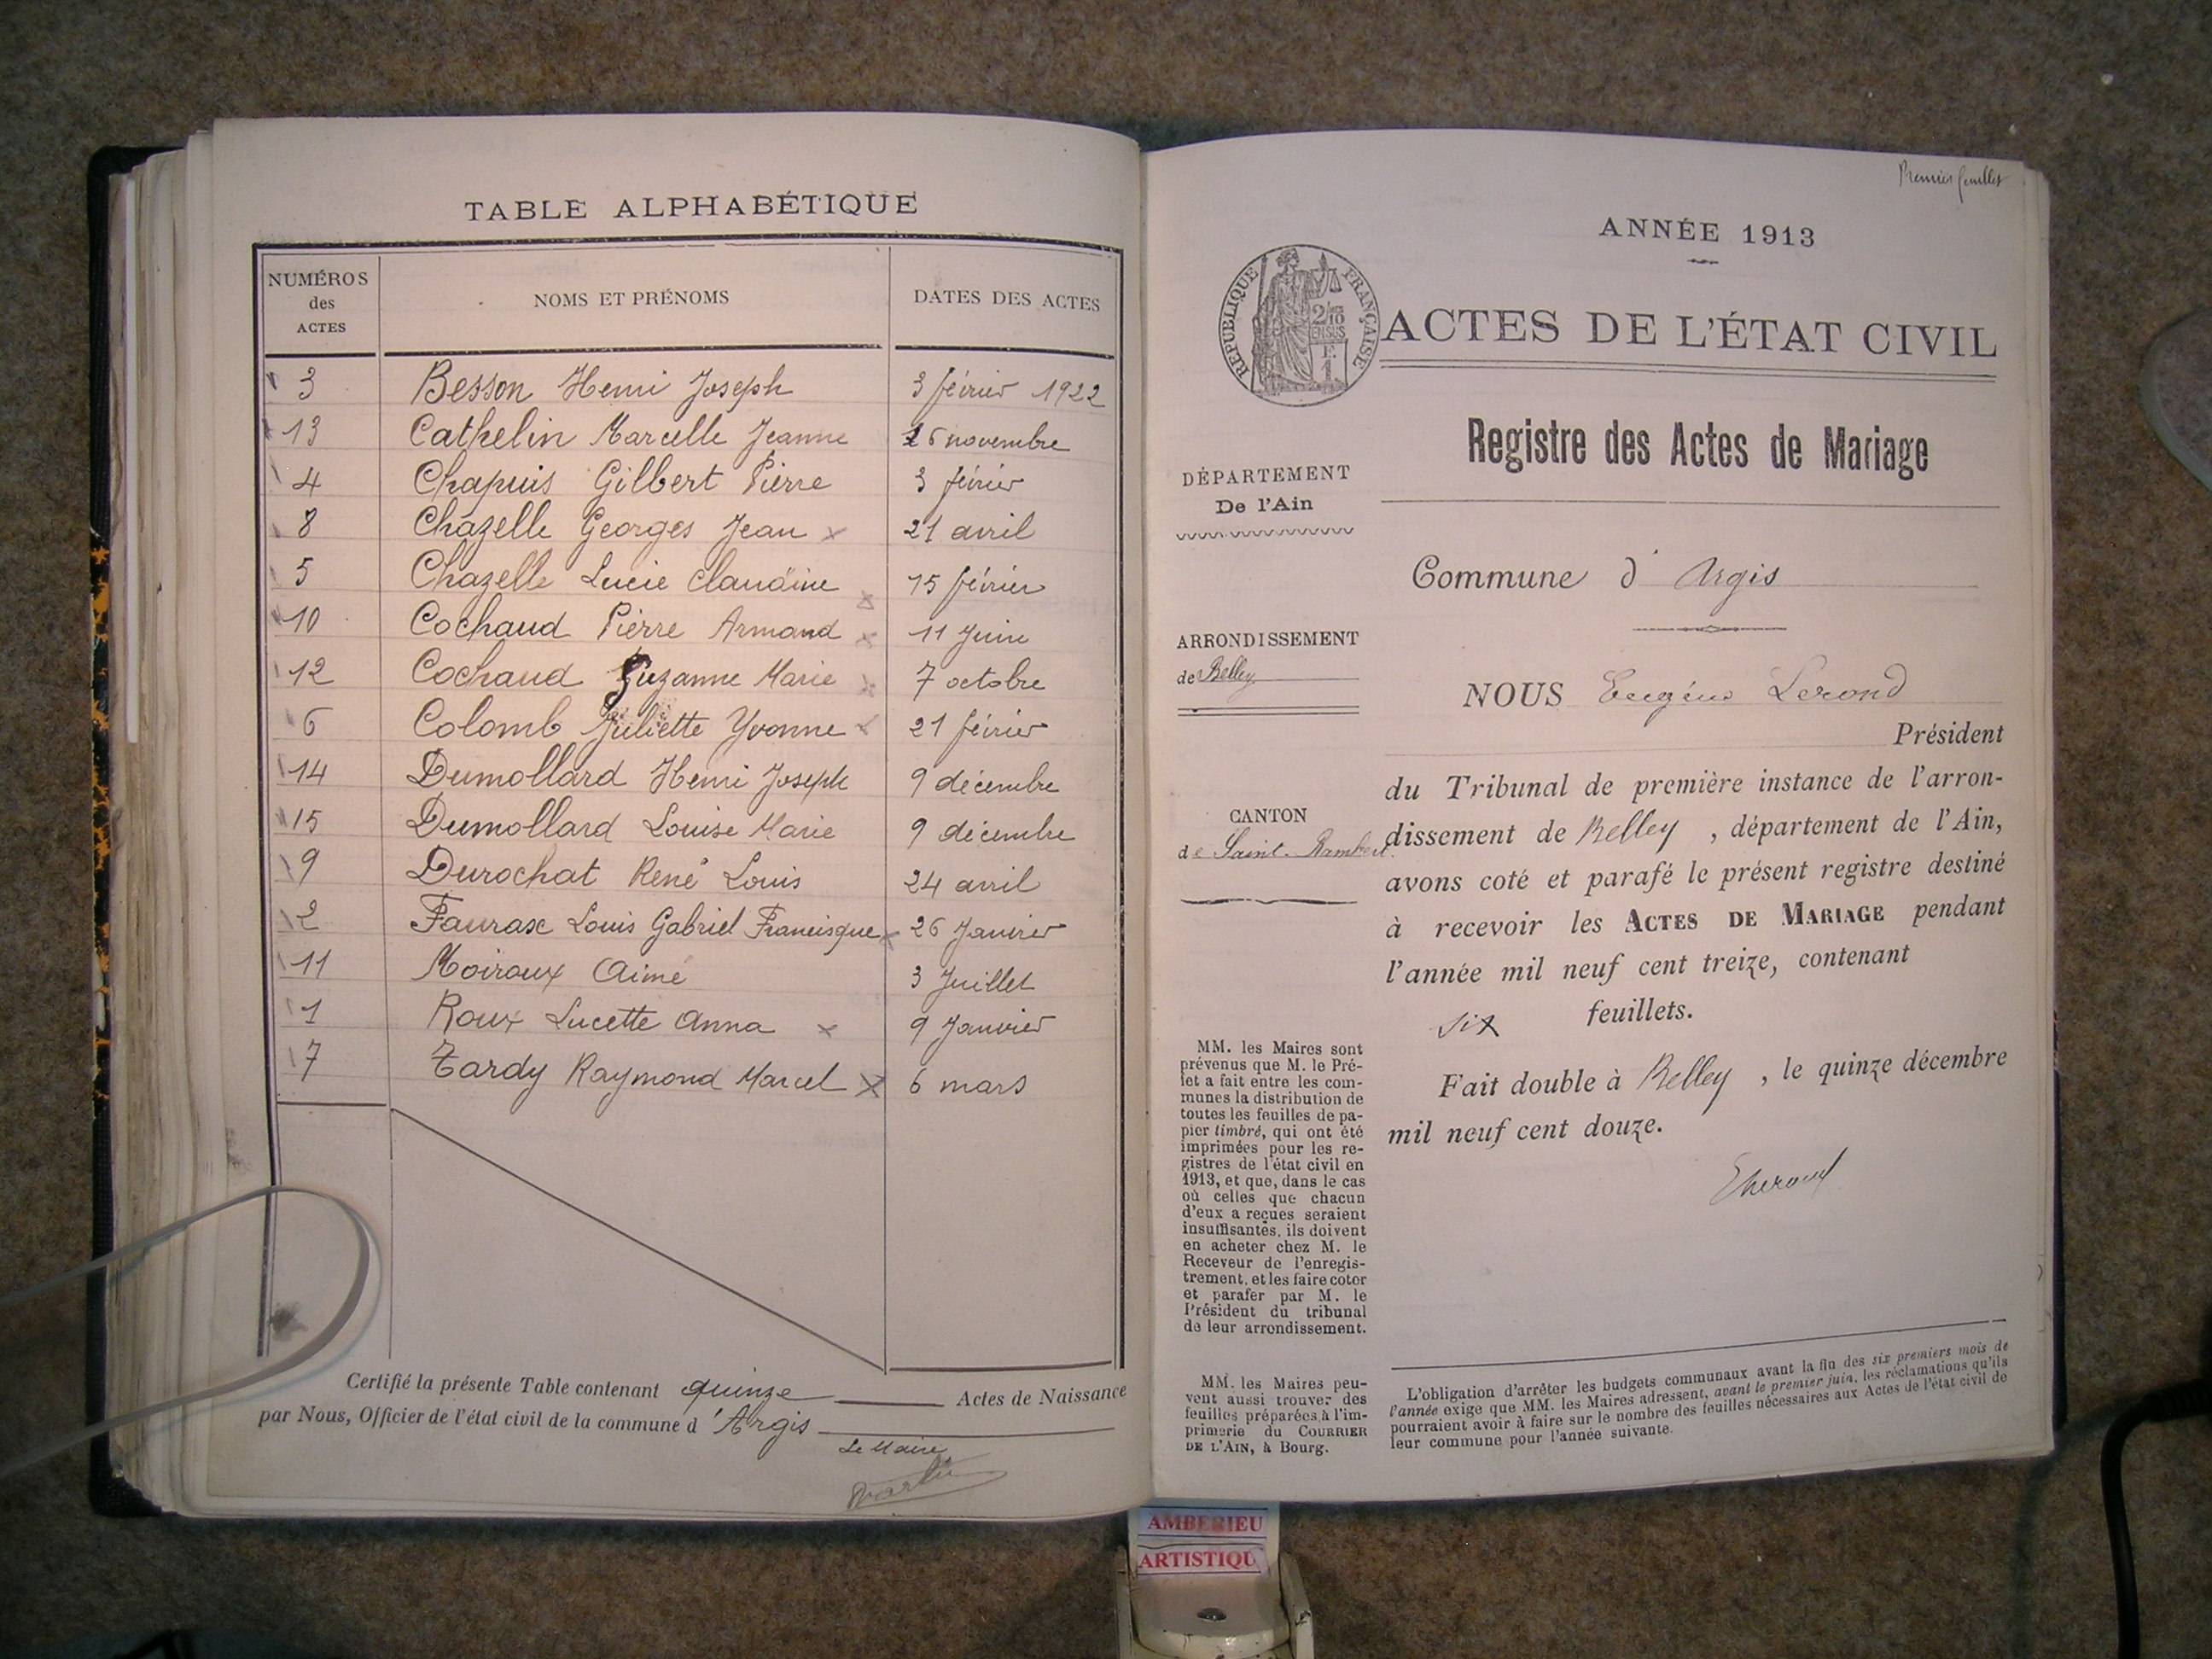 TABLE ALPHABÉTIQUE
NUMÉROS des ACTES NOMS ET PRÉNOMS DATES DES ACTES
3 Besson Henri Joseph 3 février 1922
13 Cathelin Marcelle Jeanne 26 novembre
4 Chapuis Gilbert Pierre 3 février
8 Chazelle Georges Jean x 21 avril
5 Chazelle Lucie Claudine x 15 février
10 Cochaud Pierre Armand x 11 Juin
12 Cochaud Suzanne Marie x 7 octobre
6 Colomb Juliette Yvonne x 21 février
14 Dumollard Henri Joseph 9 décembre
15 Dumollard Louise Marie 9 décembre
9 Durochat René Louis 24 avril
2 Faurax Louis Gabriel Francisque x 26 Janvier
11 Moiroux Aimé 3 Juillet
1 Roux Lucette Anna x 9 Janvier
7 Tardy Raymond Marcel x 6 mars
Certifié la présente Table contenant quinze Actes de Naissance
par Nous, Officier de l'état civil de la commune d'Argis
Le Maire
Premier feuillet
ANNÉE 1913
RÉPUBLIQUE FRANÇAISE
2/10 EN SUS
F. 1
ACTES DE L'ÉTAT CIVIL
Registre des Actes de Mariage
DÉPARTEMENT
De l'Ain
Commune d'Argis
ARRONDISSEMENT
de Belley
NOUS Eugène Lerond
Président
du Tribunal de première instance de l'arron-
CANTON
de Saint-Rambert
dissement de Belley, département de l'Ain,
avons coté et parafé le présent registre destiné
à recevoir les ACTES DE MARIAGE pendant
l'année mil neuf cent treize, contenant
six feuillets.
Fait double à Belley, le quinze décembre
mil neuf cent douze.
MM. les Maires sont
prévenus que M. le Pré-
fet a fait entre les com-
munes la distribution de
toutes les feuilles de pa-
pier timbré, qui ont été
imprimées pour les re-
gistres de l'état civil en
1913, et que, dans le cas
où celles que chacun
d'eux a reçues seraient
insuffisantes, ils doivent
en acheter chez M. le
Receveur de l'enregis-
trement, et les faire coter
et parafer par M. le
Président du tribunal
de leur arrondissement.
MM. les Maires peu-
vent aussi trouver des
feuilles préparées à l'im-
primerie du COURRIER
DE L'AIN, à Bourg.
L'obligation d'arrêter les budgets communaux avant la fin des six premiers mois de
l'année exige que MM. les Maires adressent, avant le premier juin, les réclamations qu'ils
pourraient avoir à faire sur le nombre des feuilles nécessaires aux Actes de l'état civil de
leur commune pour l'année suivante.
AMBERIEU
ARTISTIQU